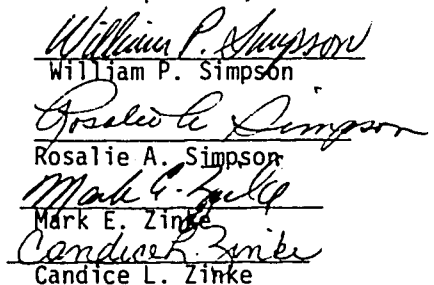 William P. Simpson
William P. Simpson
Rosalie A Simpson
Rosalie A. Simpson
Mark E. Zinke
Mark E. Zinke
Candice L. Zinke
Candice L. Zinke